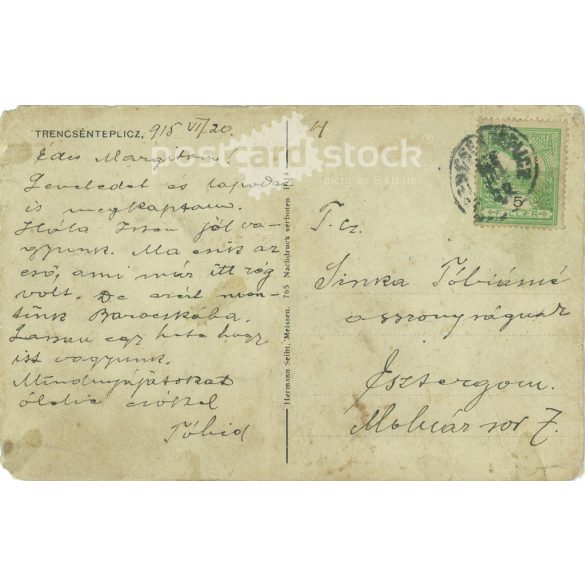 TRENCSÉNTEPLICZ, 915 VII/20.
Édes Margitom!
Leveledet és lapodat
is megkaptam.
Hála Isten jól va-
gyunk. Ma esik az
eső, ami már itt rég
volt. De azért men-
tünk Baracskába.
Lassan egy hete hogy
itt vagyunk.
Mindnyájatokat
ölelve csókol
Tóbiás
4
Hermann Seibt, Meissen. 765 Nachdruck verboten
T. cz.
Sinka Tóbiásné
asszonyságnak
Esztergom.
Molnár sor 7.
5
postcard stock
pictures & stories